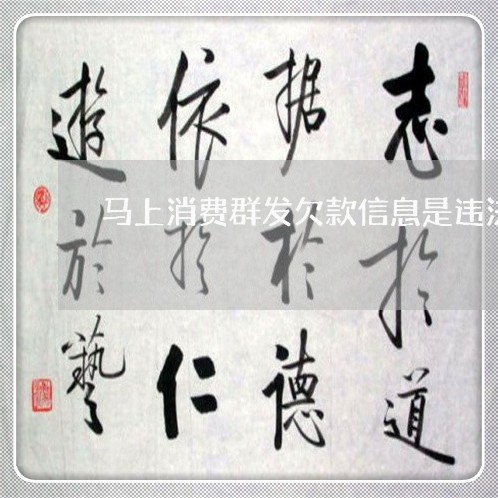 志於道
据於德
依於仁
遊於藝
马上消费群发欠款信息是违法